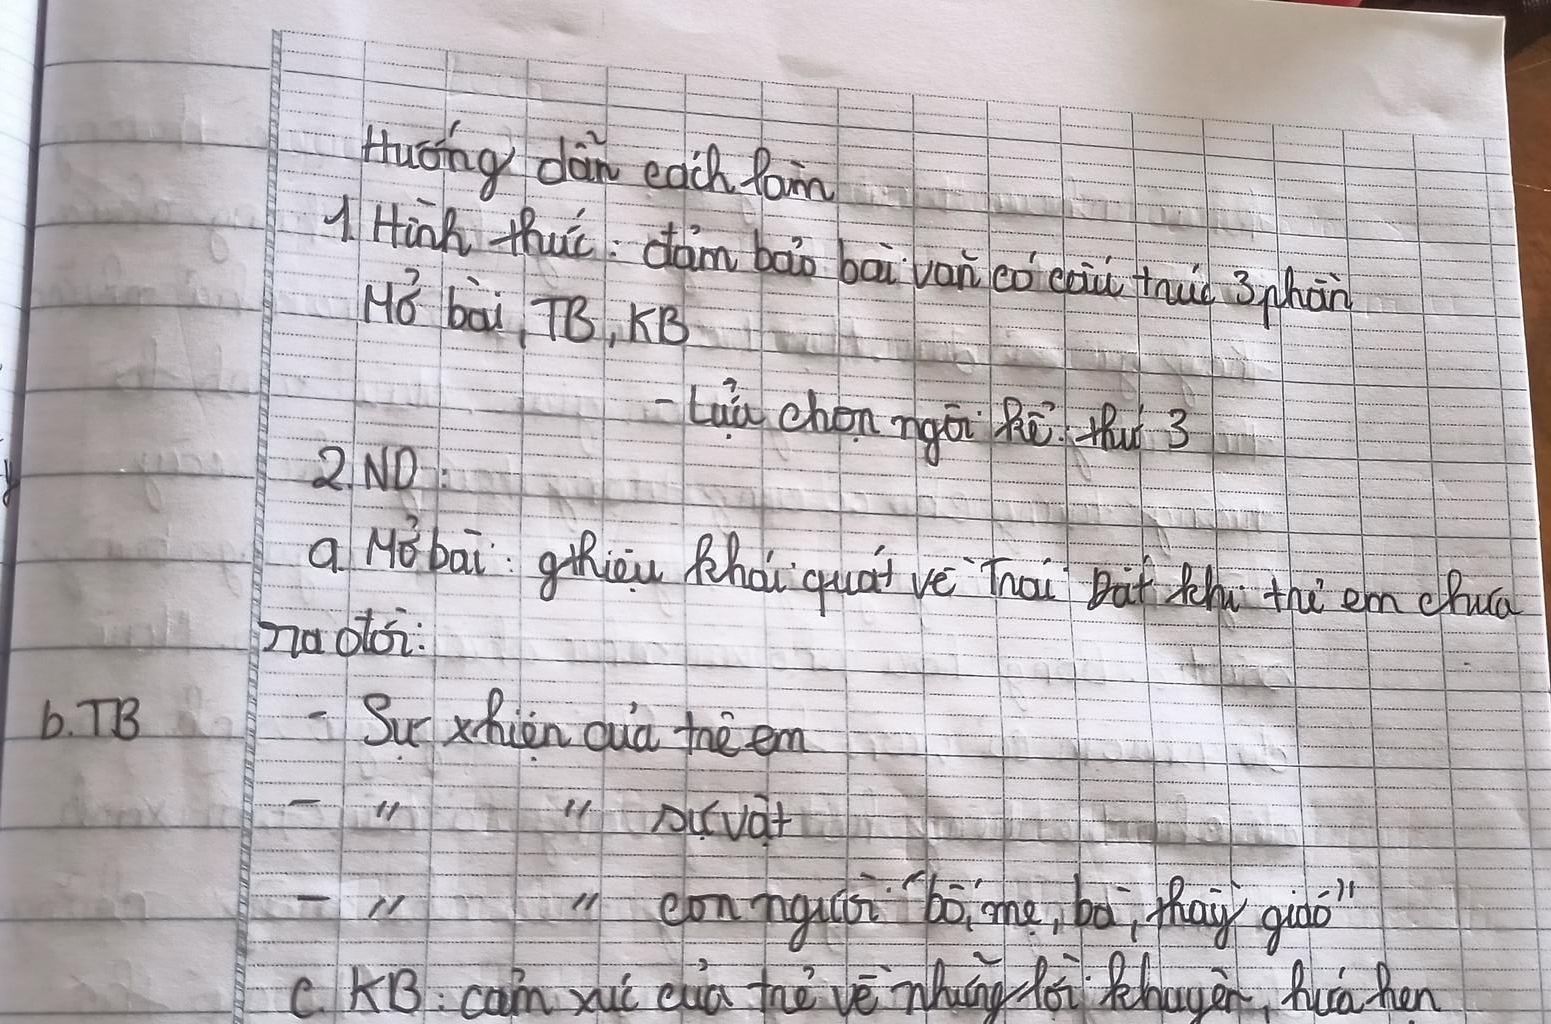 Hướng dẫn cách làm
1. Hình thức: đảm bảo bài văn có cấu trúc 3 phần
Mở bài, TB, KB
- Lựa chọn ngôi kể: thứ 3
2. ND:
a. Mở bài: gthiệu khái quát về Trái Đất khi trẻ em chưa
ra đời:
b. TB - Sự xhiện của trẻ em
- " " sự vật
- " " con người "bố, mẹ, bà, thầy giáo"
c. KB: cảm xúc của trẻ về những lời khuyên, hứa hẹn